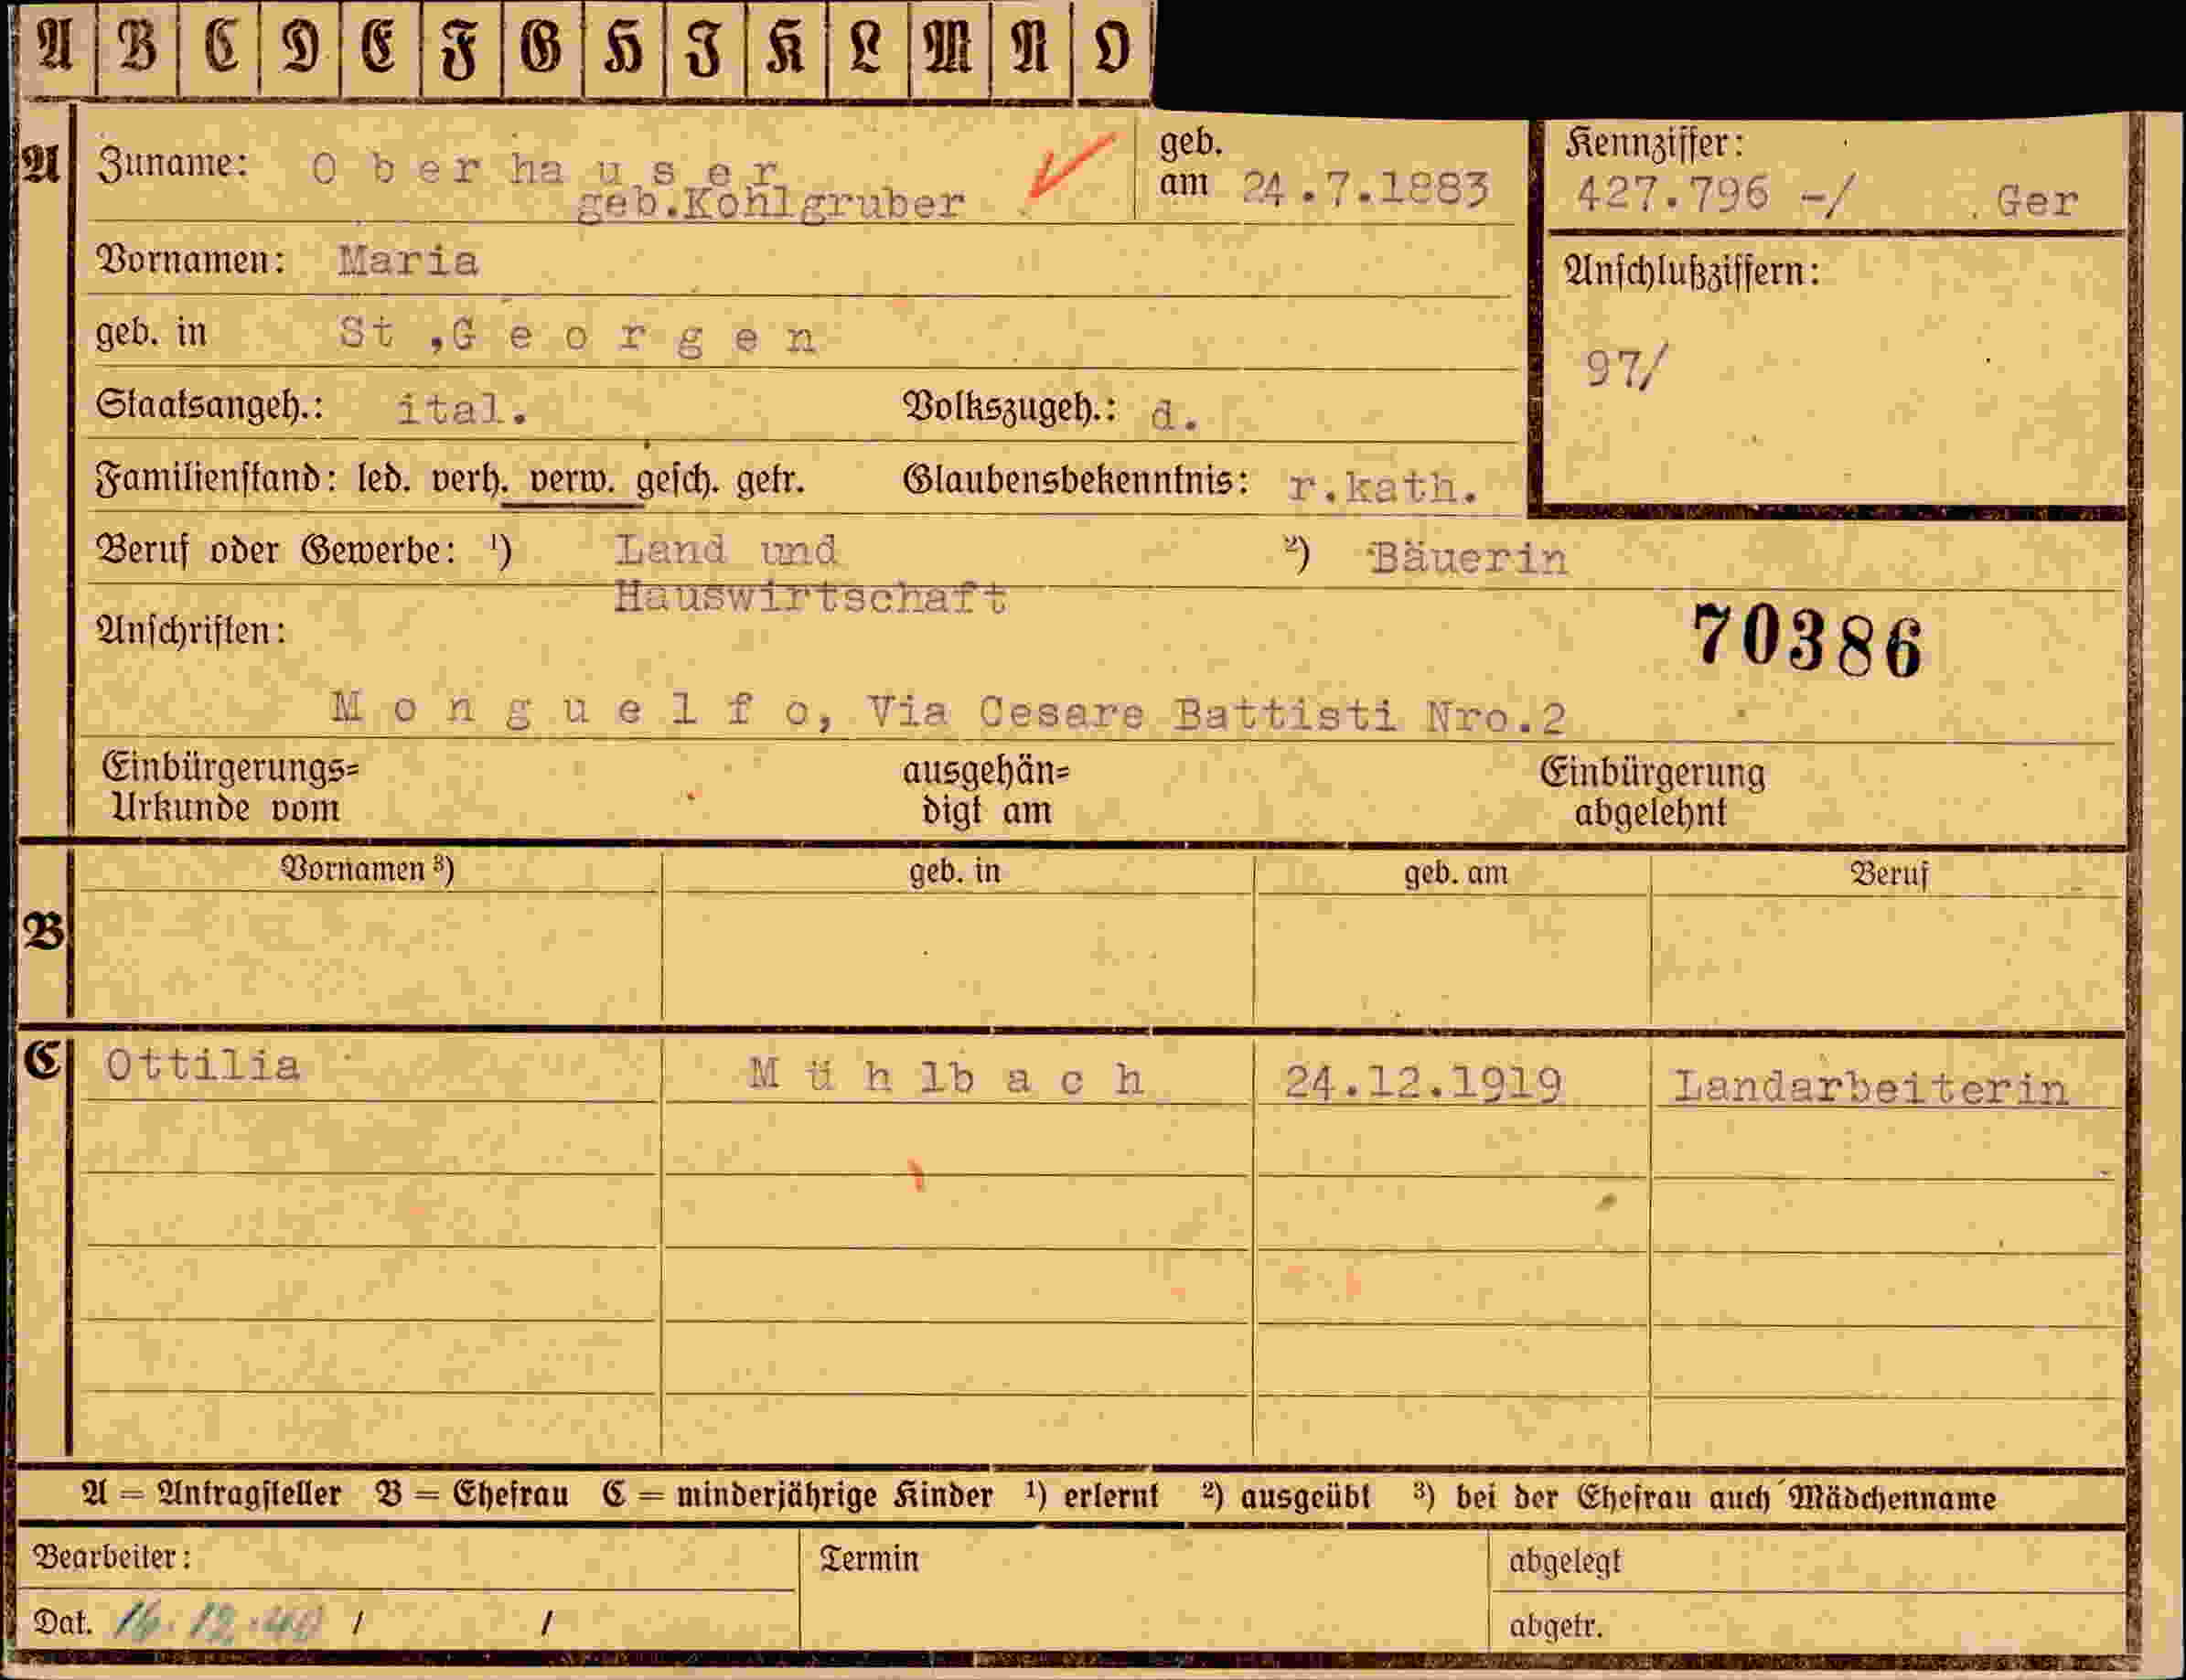 A B C D E F G H I K L M N O
A Zuname: Oberhauser geb. am 24.7.1883 Kennziffer:
geb.Kohlgruber 427.796 -/ Ger
Vornamen: Maria Anschlußziffern:
geb. in St,Georgen
97/
Staatsangeh.: ital. Volkszugeh.: d.
Familienstand: led. verh. verw. gesch. getr. Glaubensbekenntnis: r.kath.
Beruf oder Gewerbe: ¹) Land und ²) Bäuerin
Hauswirtschaft
Anschriften: 70386
Monguelfo, Via Cesare Battisti Nro.2
Einbürgerungs= ausgehän= Einbürgerung
Urkunde vom digt am abgelehnt
Vornamen ³) geb. in geb. am Beruf
B
C Ottilia Mühlbach 24.12.1919 Landarbeiterin
A = Antragsteller B = Ehefrau C = minderjährige Kinder ¹) erlernt ²) ausgeübt ³) bei der Ehefrau auch Mädchenname
Bearbeiter: Termin abgelegt
Dat. 16.12.40 / / abgetr.